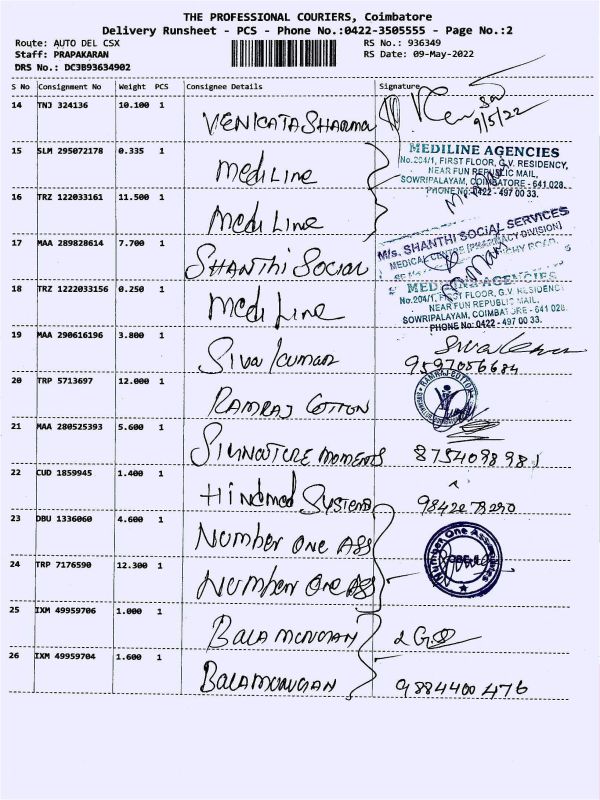 THE PROFESSIONAL COURIERS, Coimbatore
Delivery Runsheet - PCS - Phone No.:0422-3505555 - Page No.:2
Route: AUTO DEL CSX RS No.: 936349
Staff: PRAPAKARAN RS Date: 09-May-2022
DRS No.: DC3B93634902
S No Consignment No Weight PCS Consignee Details Signature
14 TNJ 324136 10.100 1 VENKATA SHARMA
9/5/22
15 SLM 295072178 0.335 1 MediLine
MEDILINE AGENCIES
No.204/1, FIRST FLOOR, G.V. RESIDENCY,
NEAR FUN REPUBLIC MAIL,
SOWRIPALAYAM, COIMBATORE - 641 028.
PHONE No: 0422 - 497 00 33.
16 TRZ 122033161 11.500 1 Medi Line
17 MAA 289828614 7.700 1 SHANTHI SOCIAL
M/s. SHANTHI SOCIAL SERVICES
MEDICAL CENTRE [PHARMACY DIVISION]
18 TRZ 1222033156 0.250 1 Medi Line
MEDILINE AGENCIES
No.204/1, FIRST FLOOR, G.V. RESIDENCY
NEAR FUN REPUBLIC MAIL,
SOWRIPALAYAM, COIMBATORE - 641 028.
PHONE No: 0422 - 497 00 33.
19 MAA 290616196 3.800 1 Siva kumar
9597056684
20 TRP 5713697 12.000 1 RAMRAJ COTTON
RAMRAJ COTTON
21 MAA 280525393 5.600 1 SIGNATURE MOMENTS 8754098981
22 CUD 1859945 1.400 1 Hindmed Systems
23 DBU 1336060 4.600 1 Number One ASS
Number One Associates
24 TRP 7176590 12.300 1 Number One ASS
25 IXM 49959706 1.000 1 BALA MURUGAN
26 IXM 49959704 1.600 1 BALAMURUGAN 9884400476